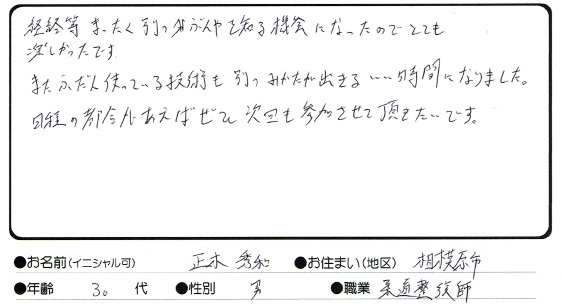 経絡等 まったく別の分ぶんやを知る機会になったのでとても
楽しかったです
またふだん使っている技術も別のみかたが出きるいい時間になりました。
日程の都合があえばぜひ次回も参加させて頂きたいです。
●お名前(イニシャル可) 正木 秀和 ●お住まい(地区) 相模原市
●年齢 30 代 ●性別 男 ●職業 柔道整復師